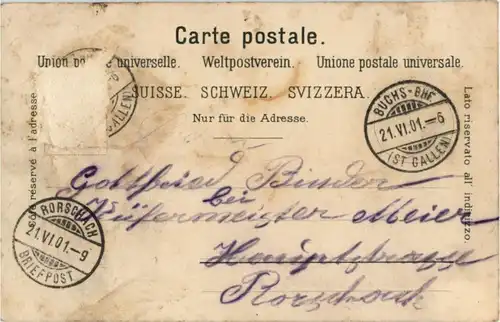 Carte postale.
Union postale universelle. Weltpostverein. Unione postale universale.
SUISSE. SCHWEIZ. SVIZZERA.
Nur für die Adresse.
Côté réservé à l'adresse.
Lato riservato all' indirizzo.
ST. GALLEN)
BUCHS-BHF.
21.VI.01.-6
(ST GALLEN)
Gottfried Binder
bei
Küfermeister Meier
Hauptstrasse
Rorschach
RORSCHACH
21.VI.01.-9
BRIEFPOST